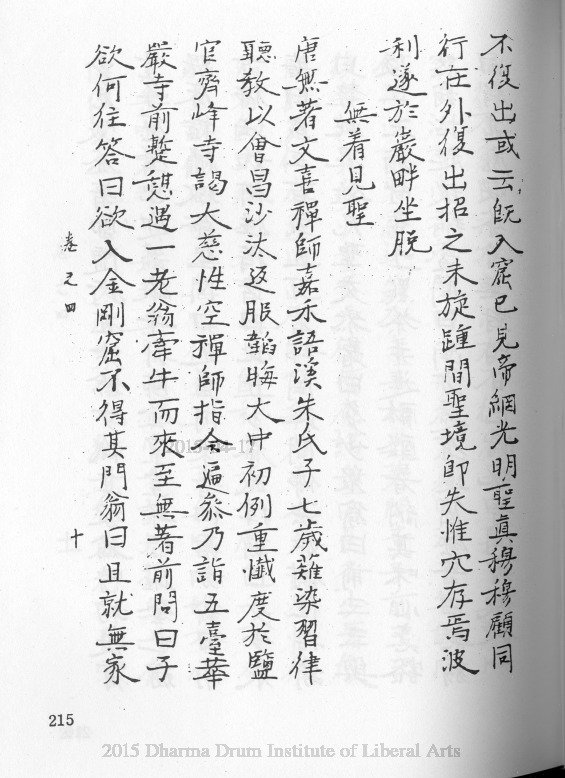 不復出或云既入窟已見帝網光明聖真穆穆顧同
行在外復出招之未旋踵間聖境卽失惟穴存焉波
利遂於巖畔坐脫
無着見聖
唐無著文喜禪師嘉禾語溪朱氏子七歲薙染習律
聽教以會昌沙汰返服韜晦大中初例重懺度於鹽
官齊峰寺謁大慈性空禪師指令遍叅乃詣五臺華
嚴寺前蹔憩遇一老翁牽牛而來至無著前問曰子
欲何往答曰欲入金剛窟不得其門翁曰且就無家
卷之四
十
215
2015 Dharma Drum Institute of Liberal Arts